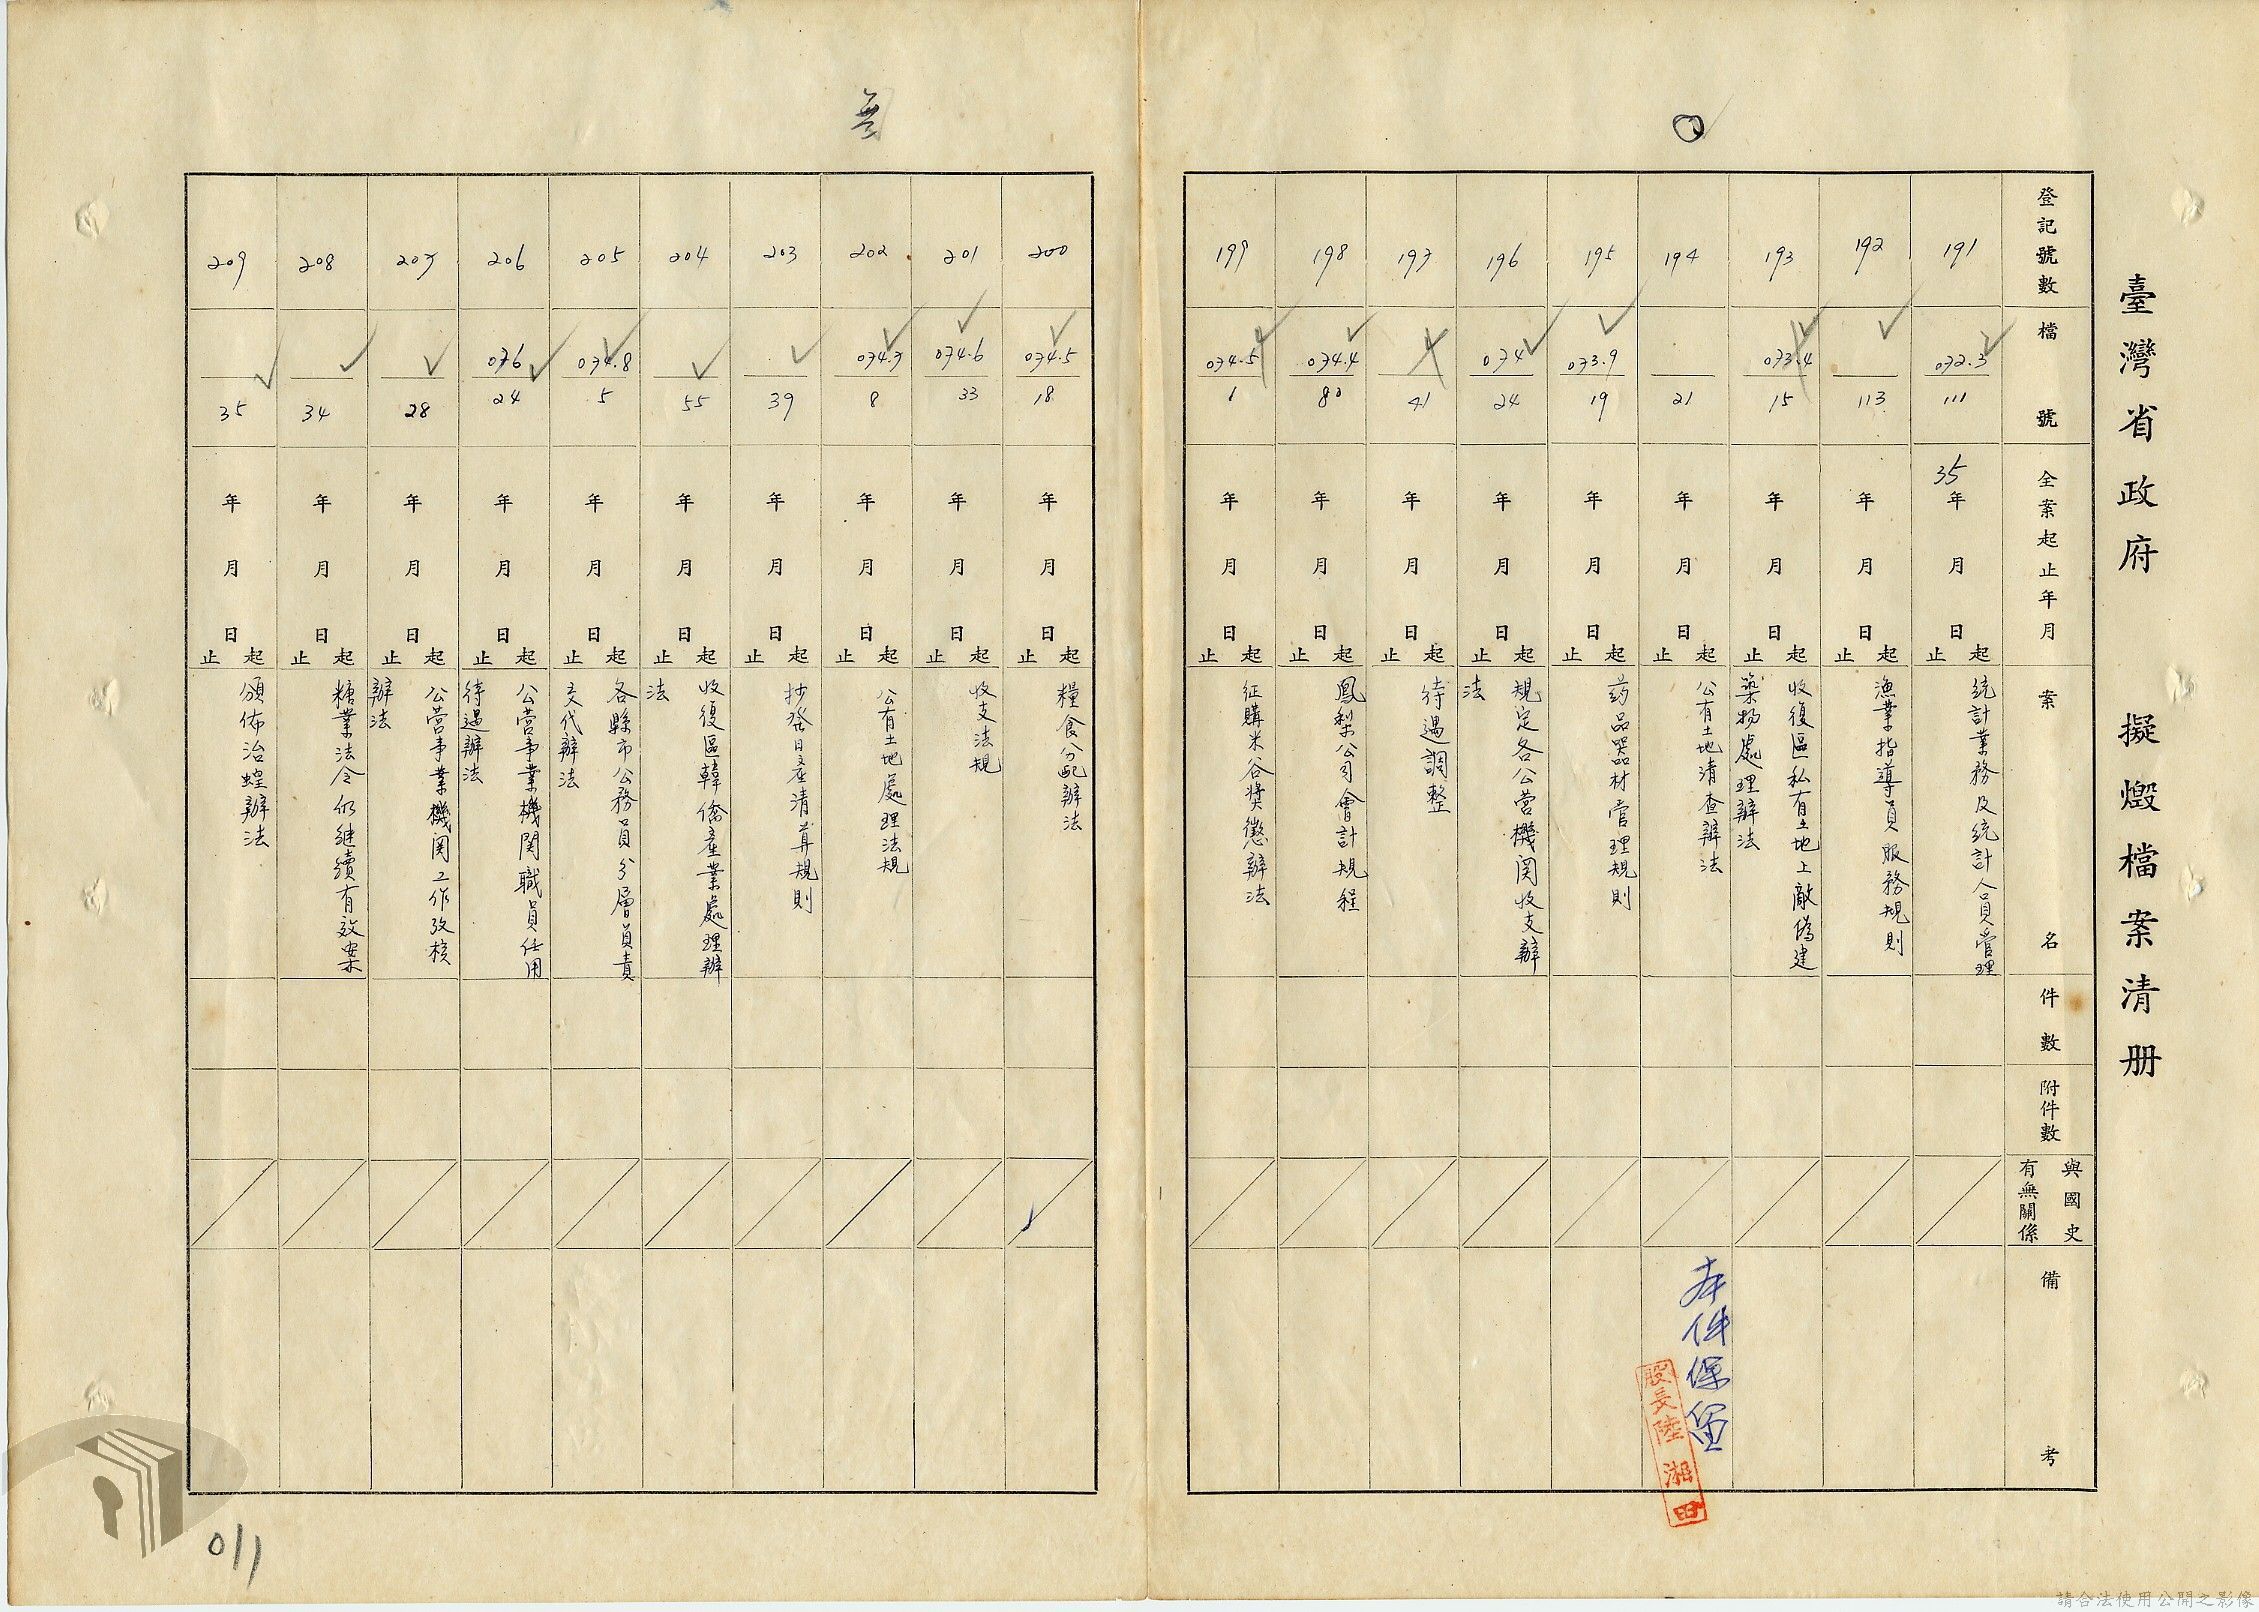 臺灣省政府 擬燬檔案清册
登記號數
檔號
全案起止年月
案名
件數
附件數
與國史
有無關係
備考
191
072.3
111
35年月日起止
統計業務及統計人員管理
192
113
年月日起止
漁業指導員服務規則
193
073.4
15
年月日起止
收復區私有土地上敵偽建
築物處理辦法
194
21
年月日起止
公有土地清查辦法
本件保留
股長陸湘田
195
073.9
19
年月日起止
药品器材管理規則
196
074
24
年月日起止
規定各公营機関收支辦
法
197
41
年月日起止
待遇調整
198
074.4
80
年月日起止
鳳梨公司會計規程
199
074.5
1
年月日起止
征購米谷獎懲辦法
200
074.5
18
年月日起止
糧食分配辦法
201
074.6
33
年月日起止
收支法規
202
074.7
8
年月日起止
公有土地處理法規
203
39
年月日起止
抄發日産清算規則
204
55
年月日起止
收復區韓僑產業處理辦
法
205
074.8
5
年月日起止
各縣市公務員分層負責
交代辦法
206
076
24
年月日起止
公営事業機関職員任用
待遇辦法
207
28
年月日起止
公営事業機関工作攷核
辦法
208
34
年月日起止
糖業法令仍继續有效案
209
35
年月日起止
頒佈治蝗辦法
011
請合法使用公開之影像